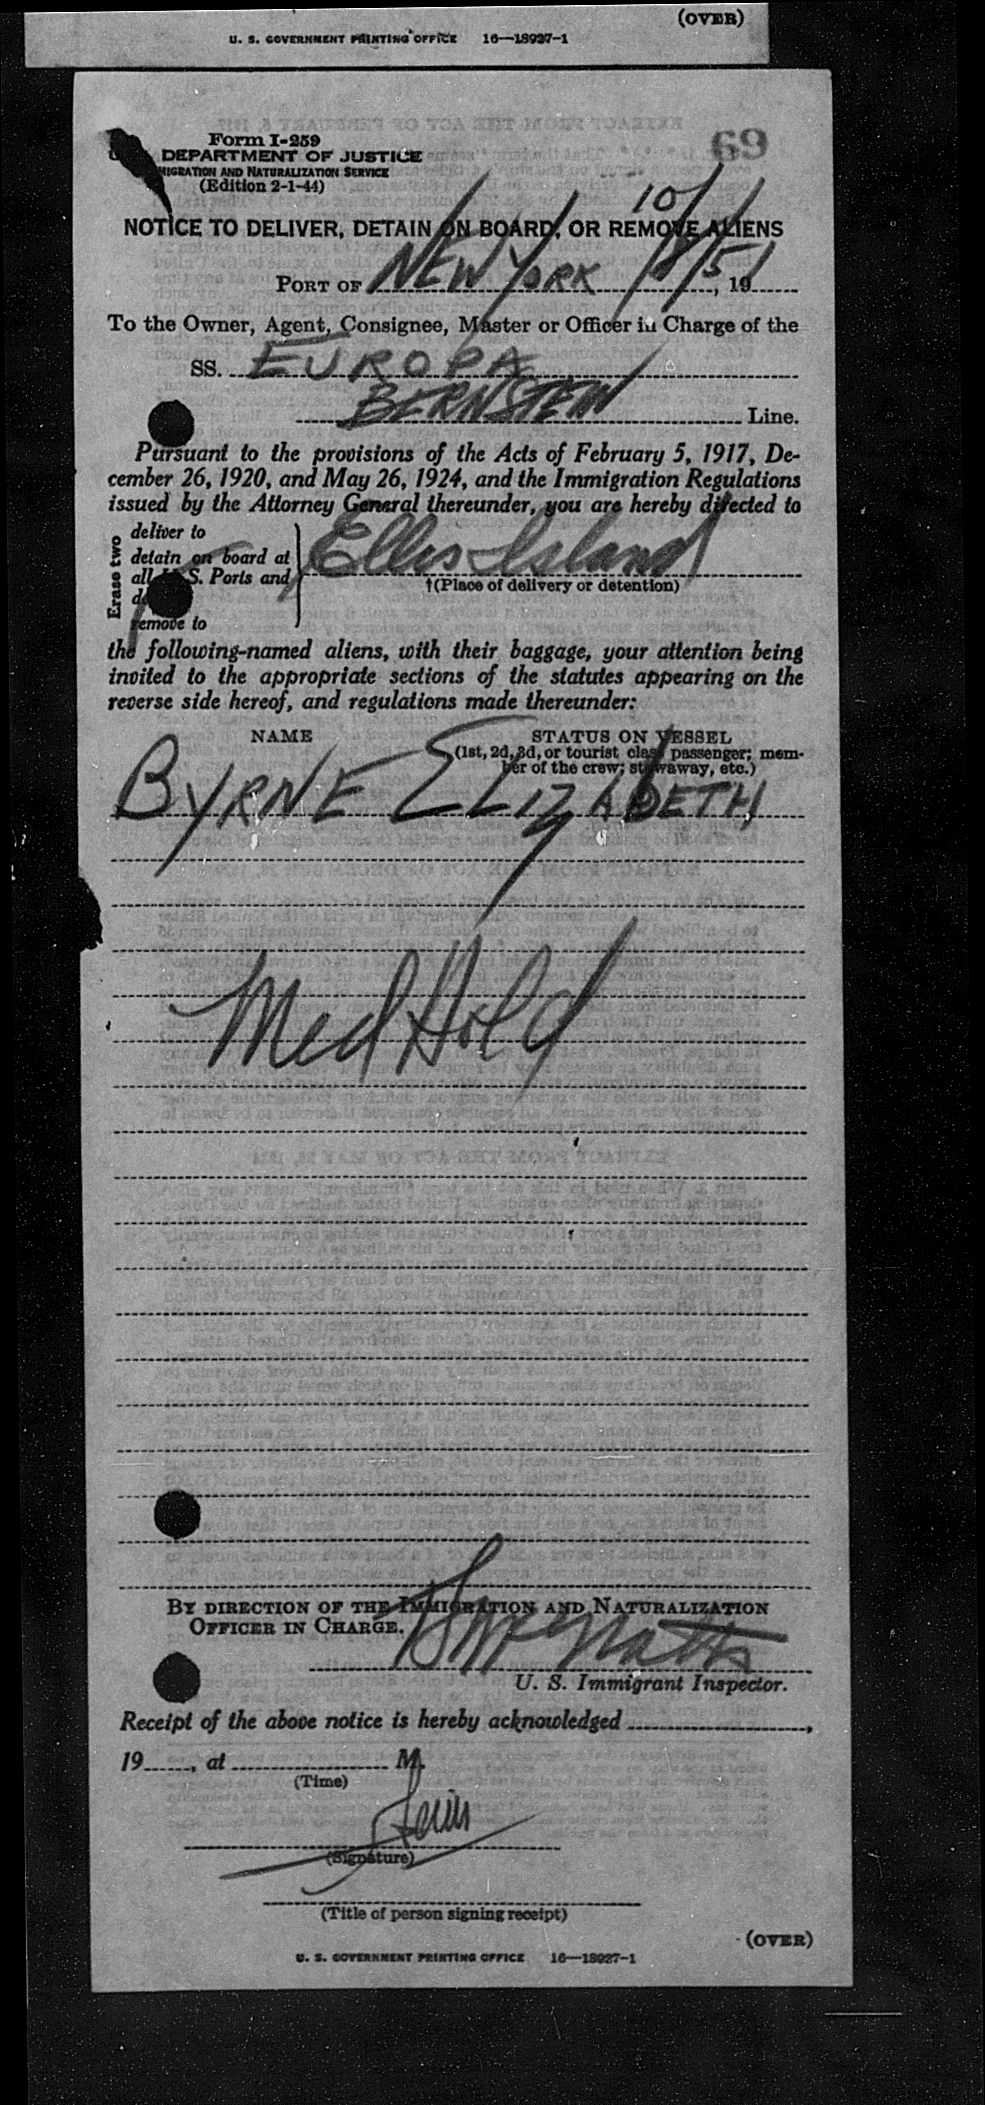 (OVER)
U. S. GOVERNMENT PRINTING OFFICE 16—18927-1
Form I-259
DEPARTMENT OF JUSTICE
IMMIGRATION AND NATURALIZATION SERVICE
(Edition 2-1-44)
69
NOTICE TO DELIVER, DETAIN ON BOARD, OR REMOVE ALIENS
PORT OF NEW YORK 10/ , 19
To the Owner, Agent, Consignee, Master or Officer in Charge of the
SS. EUROPA
BERNSTEIN Line.
Pursuant to the provisions of the Acts of February 5, 1917, De-
cember 26, 1920, and May 26, 1924, and the Immigration Regulations
issued by the Attorney General thereunder, you are hereby directed to
Erase two
deliver to
detain on board at
all U. S. Ports and
remove to
Ellis Island
†(Place of delivery or detention)
the following-named aliens, with their baggage, your attention being
invited to the appropriate sections of the statutes appearing on the
reverse side hereof, and regulations made thereunder:
NAME STATUS ON VESSEL
(1st, 2d, 3d, or tourist class passenger; mem-
ber of the crew; stowaway, etc.)
BYRNE ELIZABETH
Med Hold
BY DIRECTION OF THE IMMIGRATION AND NATURALIZATION
OFFICER IN CHARGE.
U. S. Immigrant Inspector.
Receipt of the above notice is hereby acknowledged ,
19 , at M.
(Time)
(Signature)
(Title of person signing receipt)
(OVER)
U. S. GOVERNMENT PRINTING OFFICE 16—18927-1